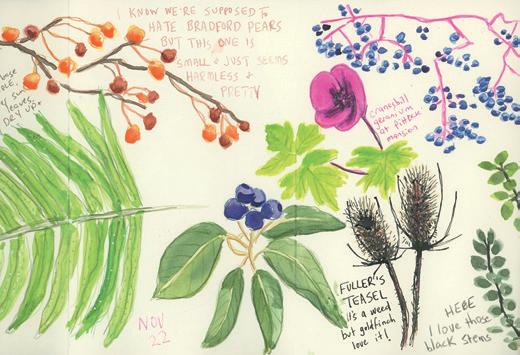 I KNOW WE'RE SUPPOSED TO
HATE BRADFORD PEARS
BUT THIS ONE IS
SMALL & JUST SEEMS
HARMLESS &
PRETTY
sun
leaves
DRY UP.
cranesbill
geranium
at Pittock
mansion
FULLER'S
TEASEL
it's a weed
but goldfinch
love it!
NOV
22
HEBE
I love those
black stems